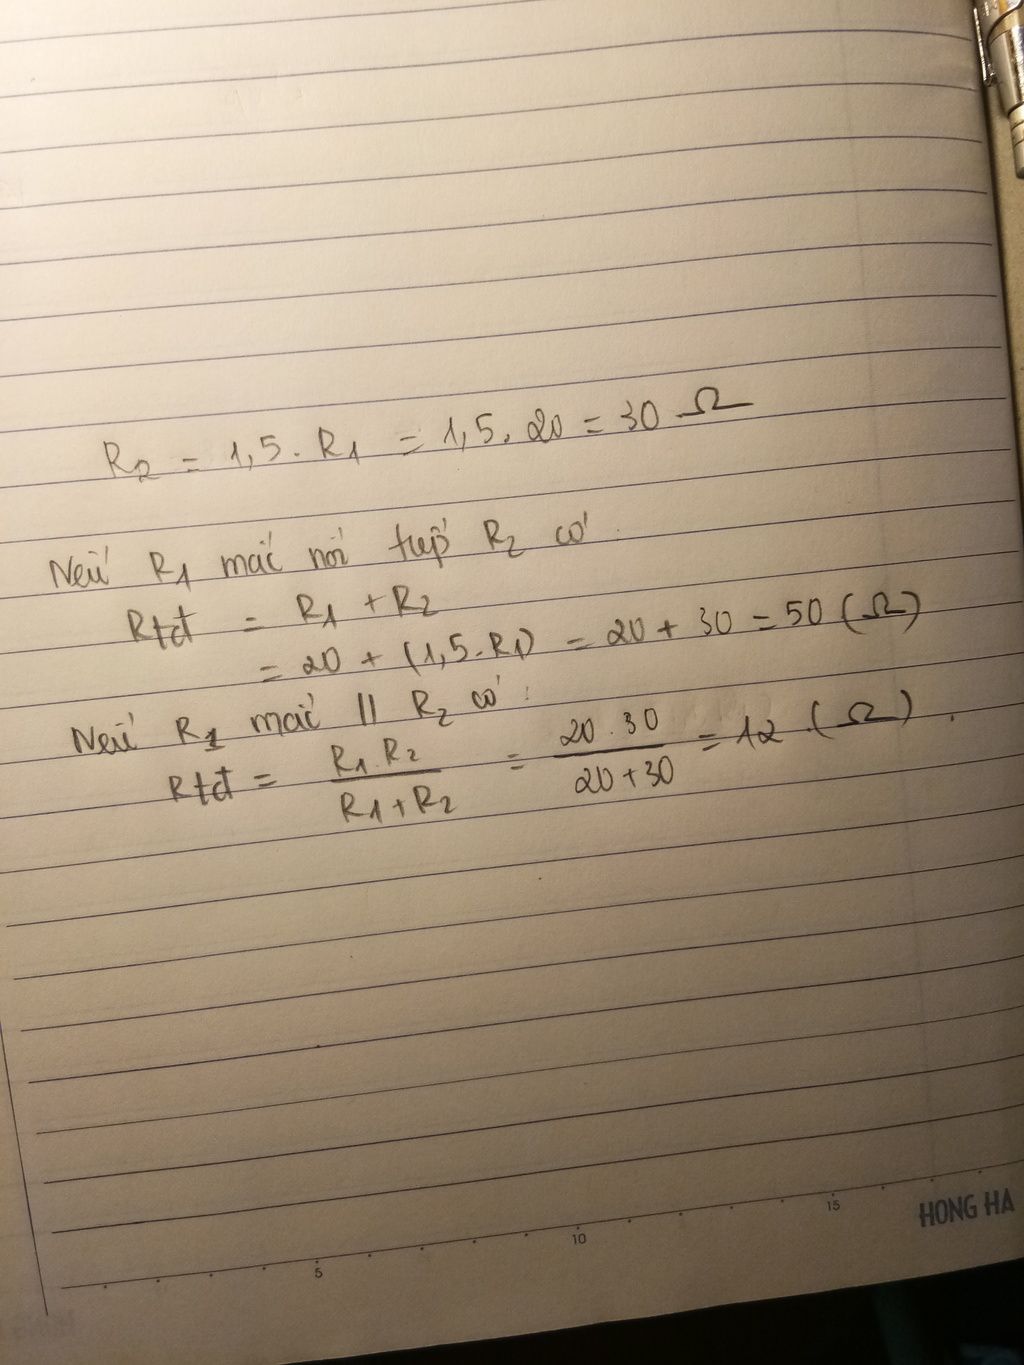 R2 = 1,5. R1 = 1,5. 20 = 30 Ω
Nếu R1 mắc nối tiếp R2 có:
Rtđ = R1 + R2
= 20 + (1,5.R1) = 20 + 30 = 50 (Ω)
Nếu R1 mắc // R2 có:
Rtđ = R1.R2 / R1+R2 = 20.30 / 20+30 = 12 (Ω).
5 10 15
HONG HA